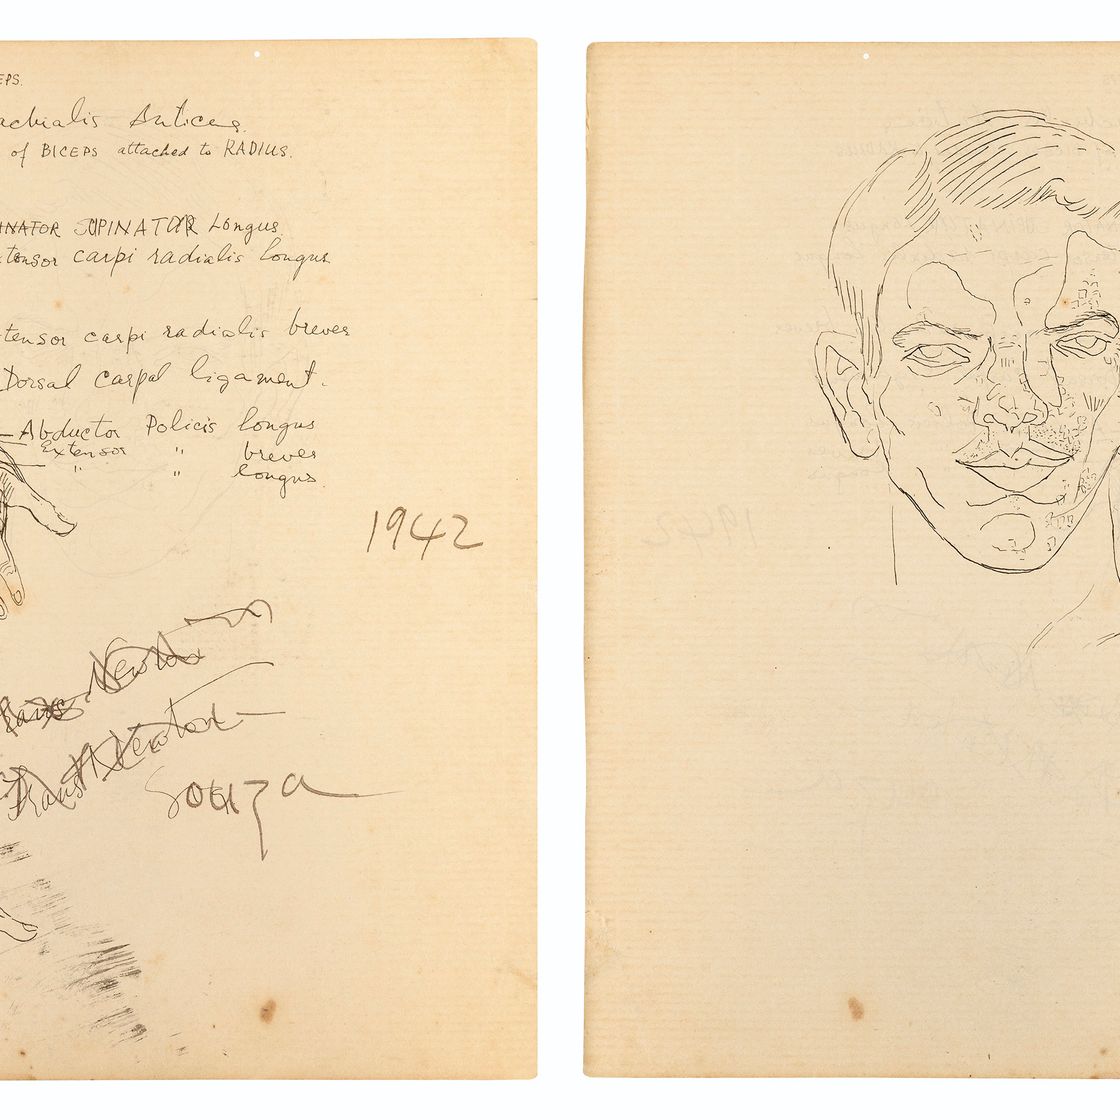 EPS.
achialis Anticus.
of BICEPS attached to RADIUS.
INATOR SUPINATOR Longus.
tensor carpi radialis longus
tensor carpi radialis breves
Dorsal carpal ligament.
Abductor Policis longus
Extensor " breves
" " longus.
1942
Newton
Frans Newton
Souza